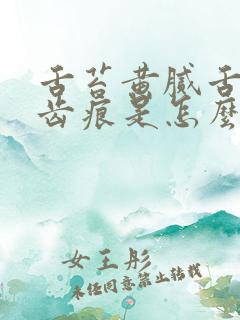 舌苔黄腻舌
齿痕是怎麼
女王彤
未经同意禁止转载